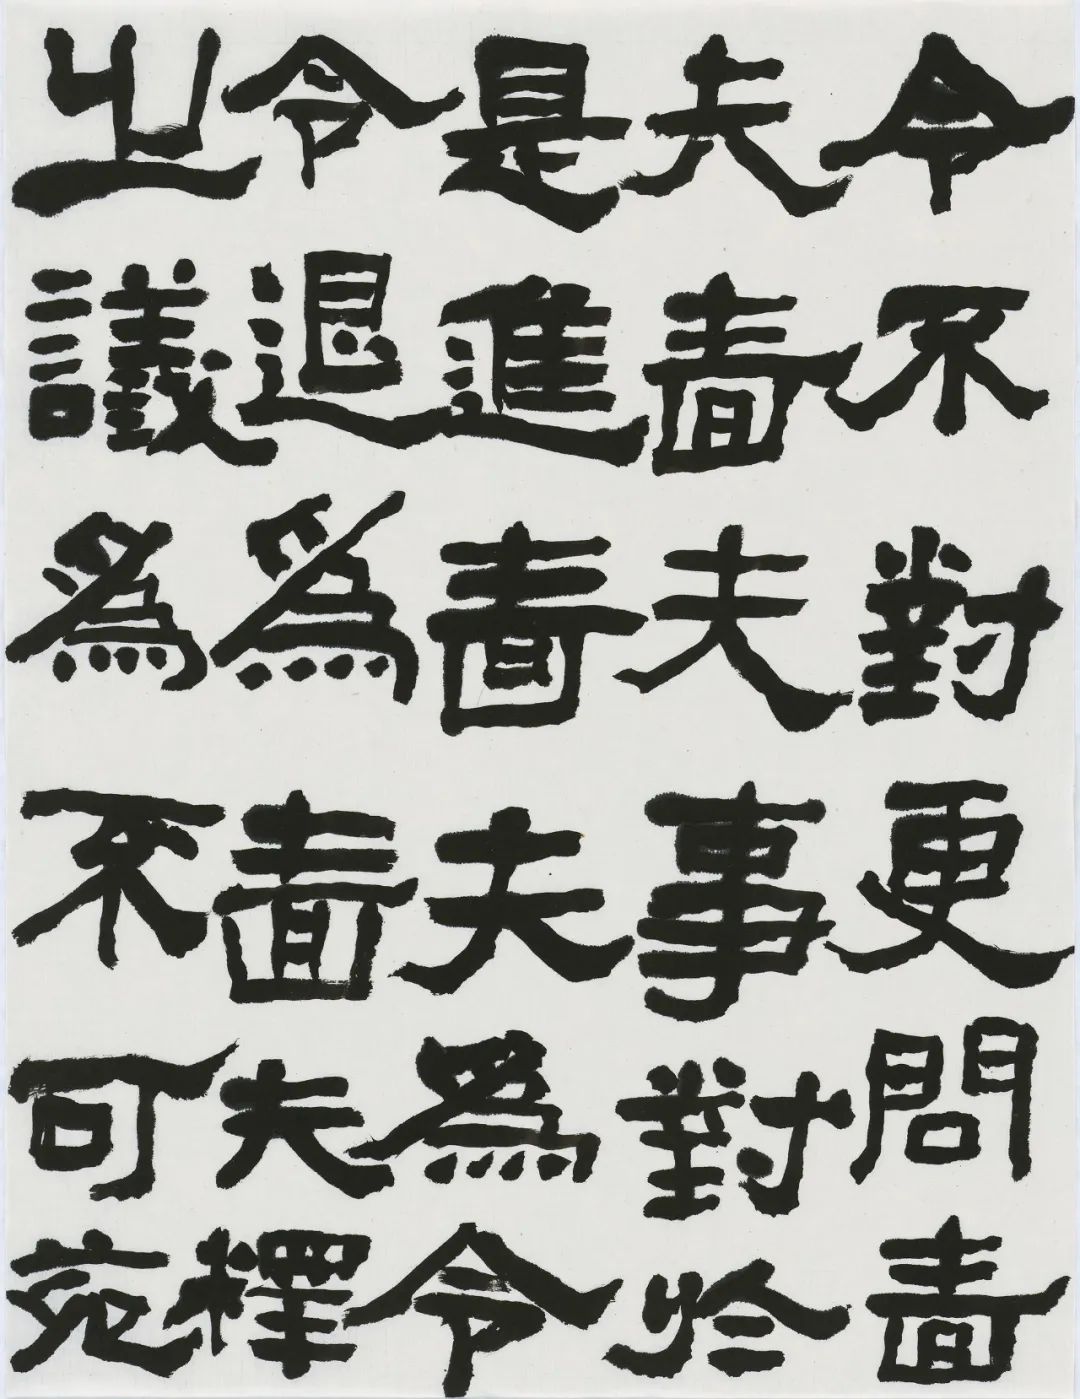 令不對更問嗇
夫嗇夫事對於
是進嗇夫為令
令退為嗇夫釋
之議為不可苑